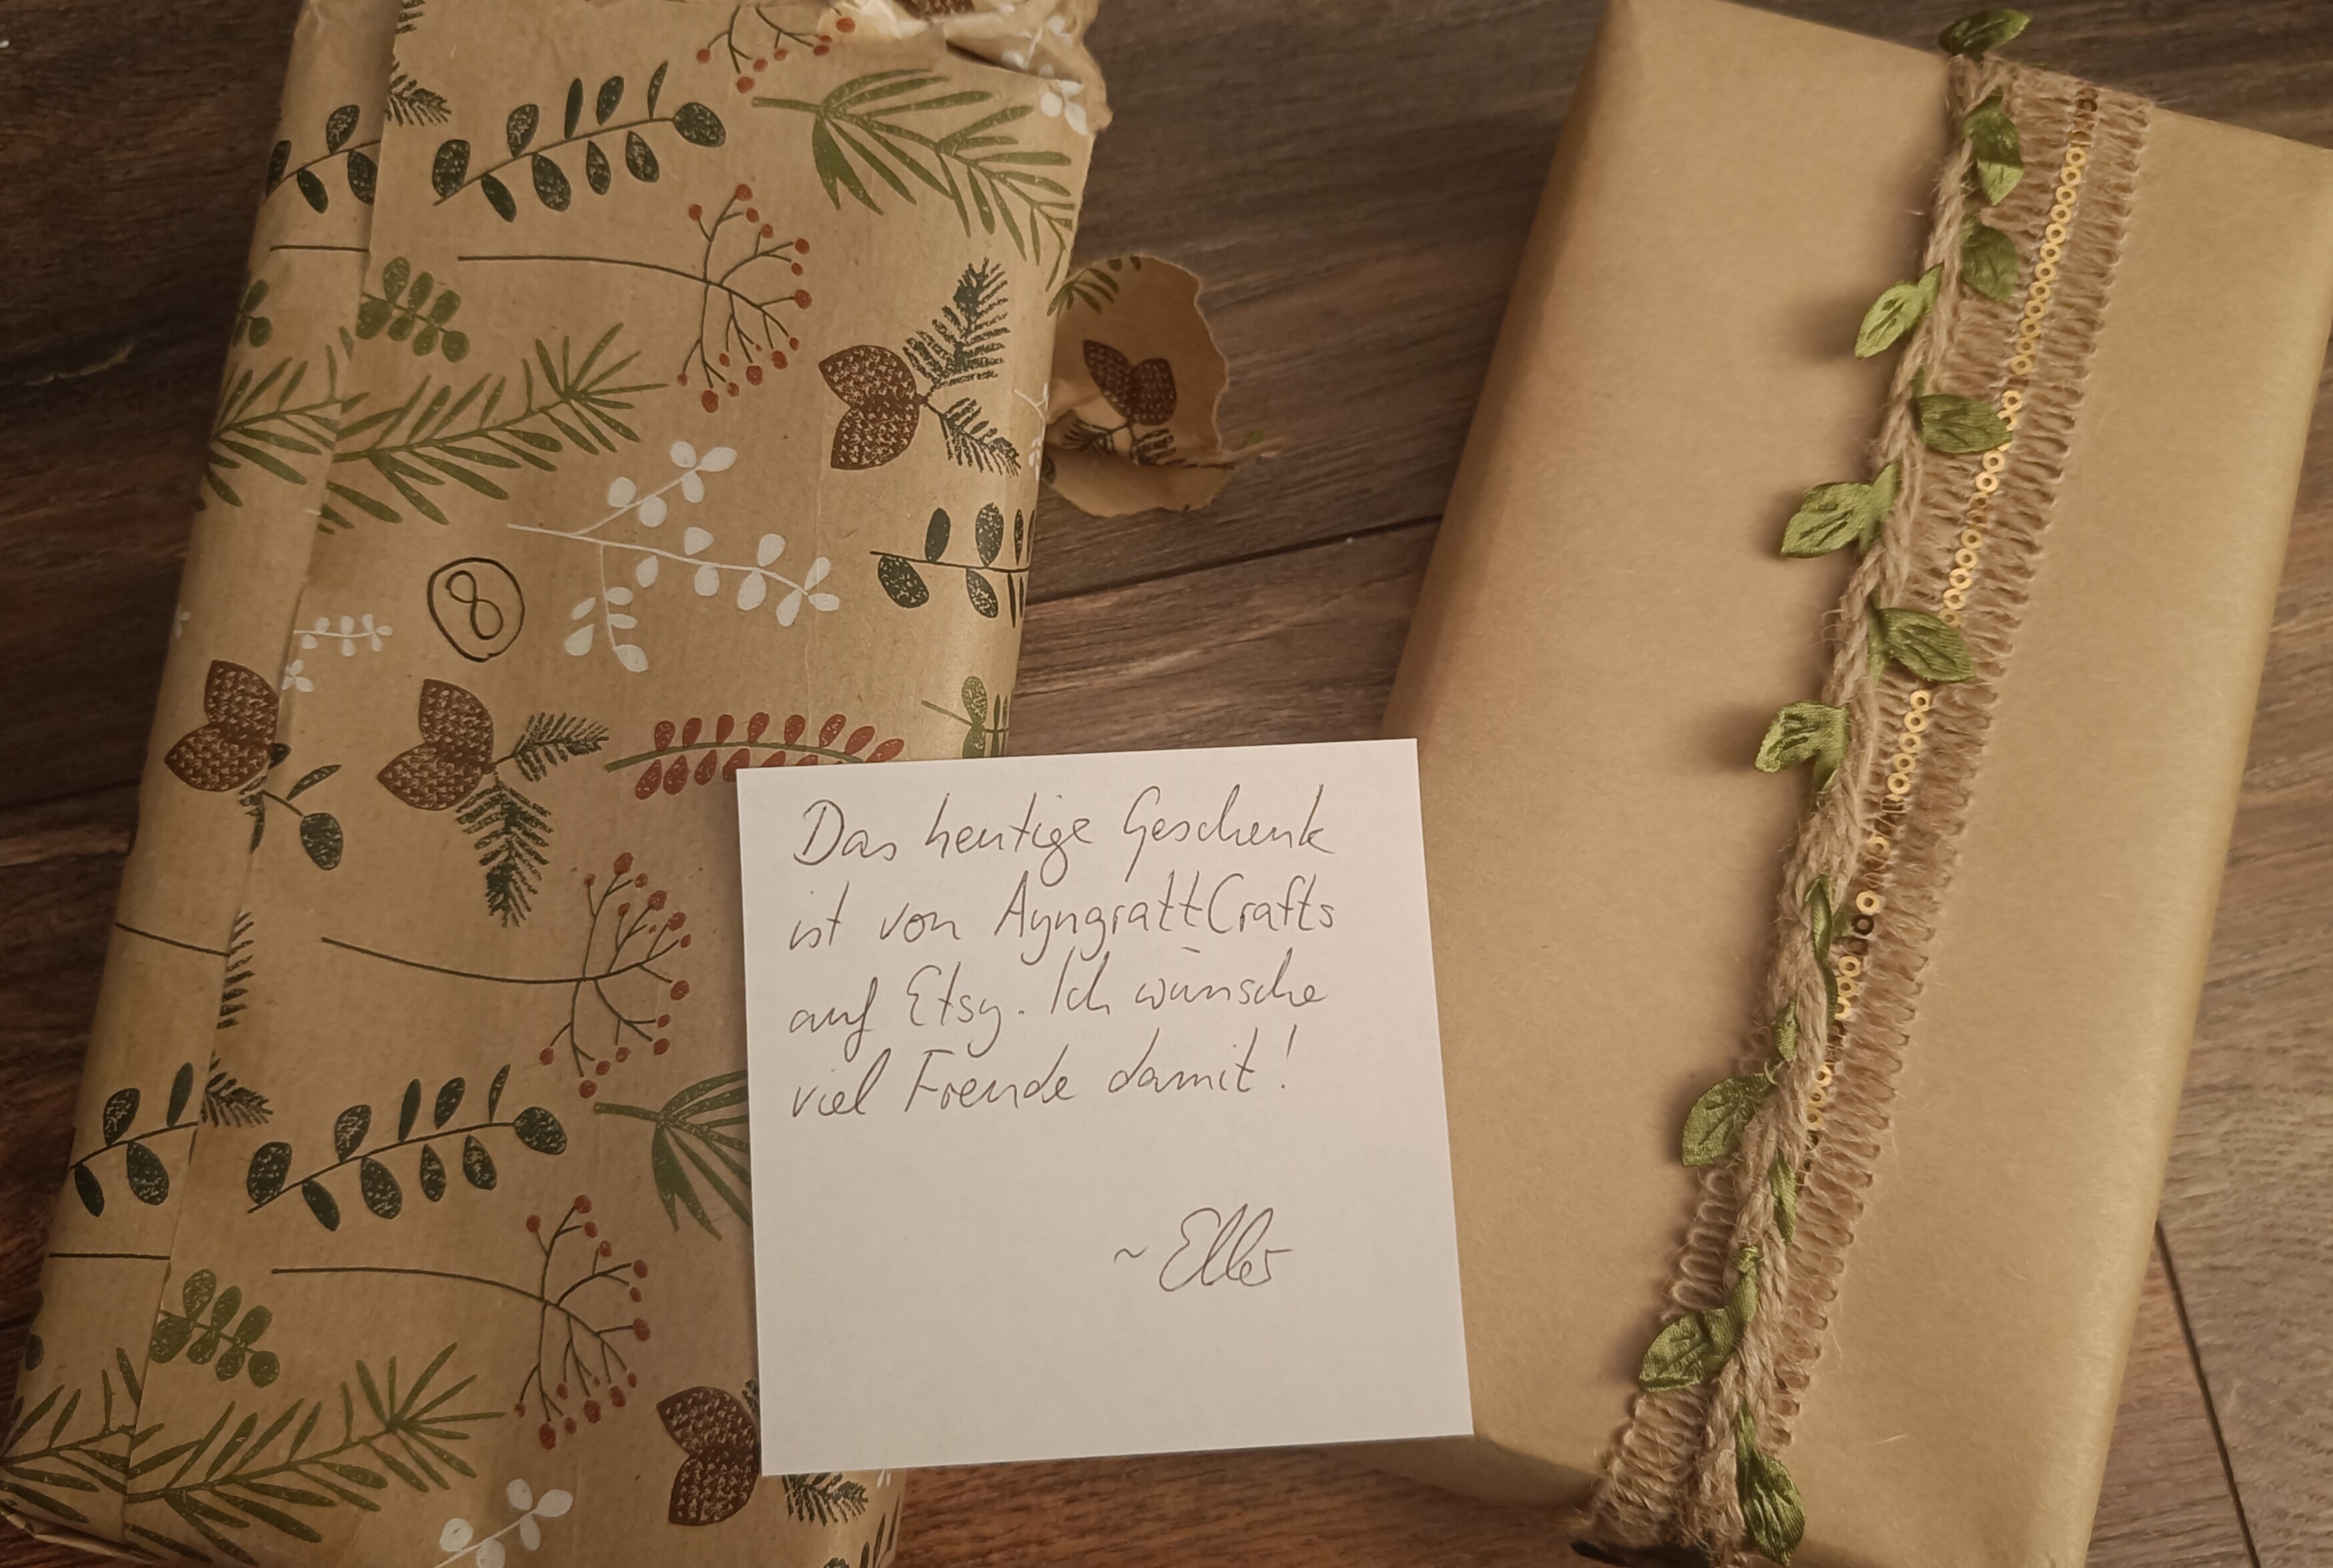 8
Das heutige Geschenk
ist von AyngrattCrafts
auf Etsy. Ich wünsche
viel Freude damit!
~Elles